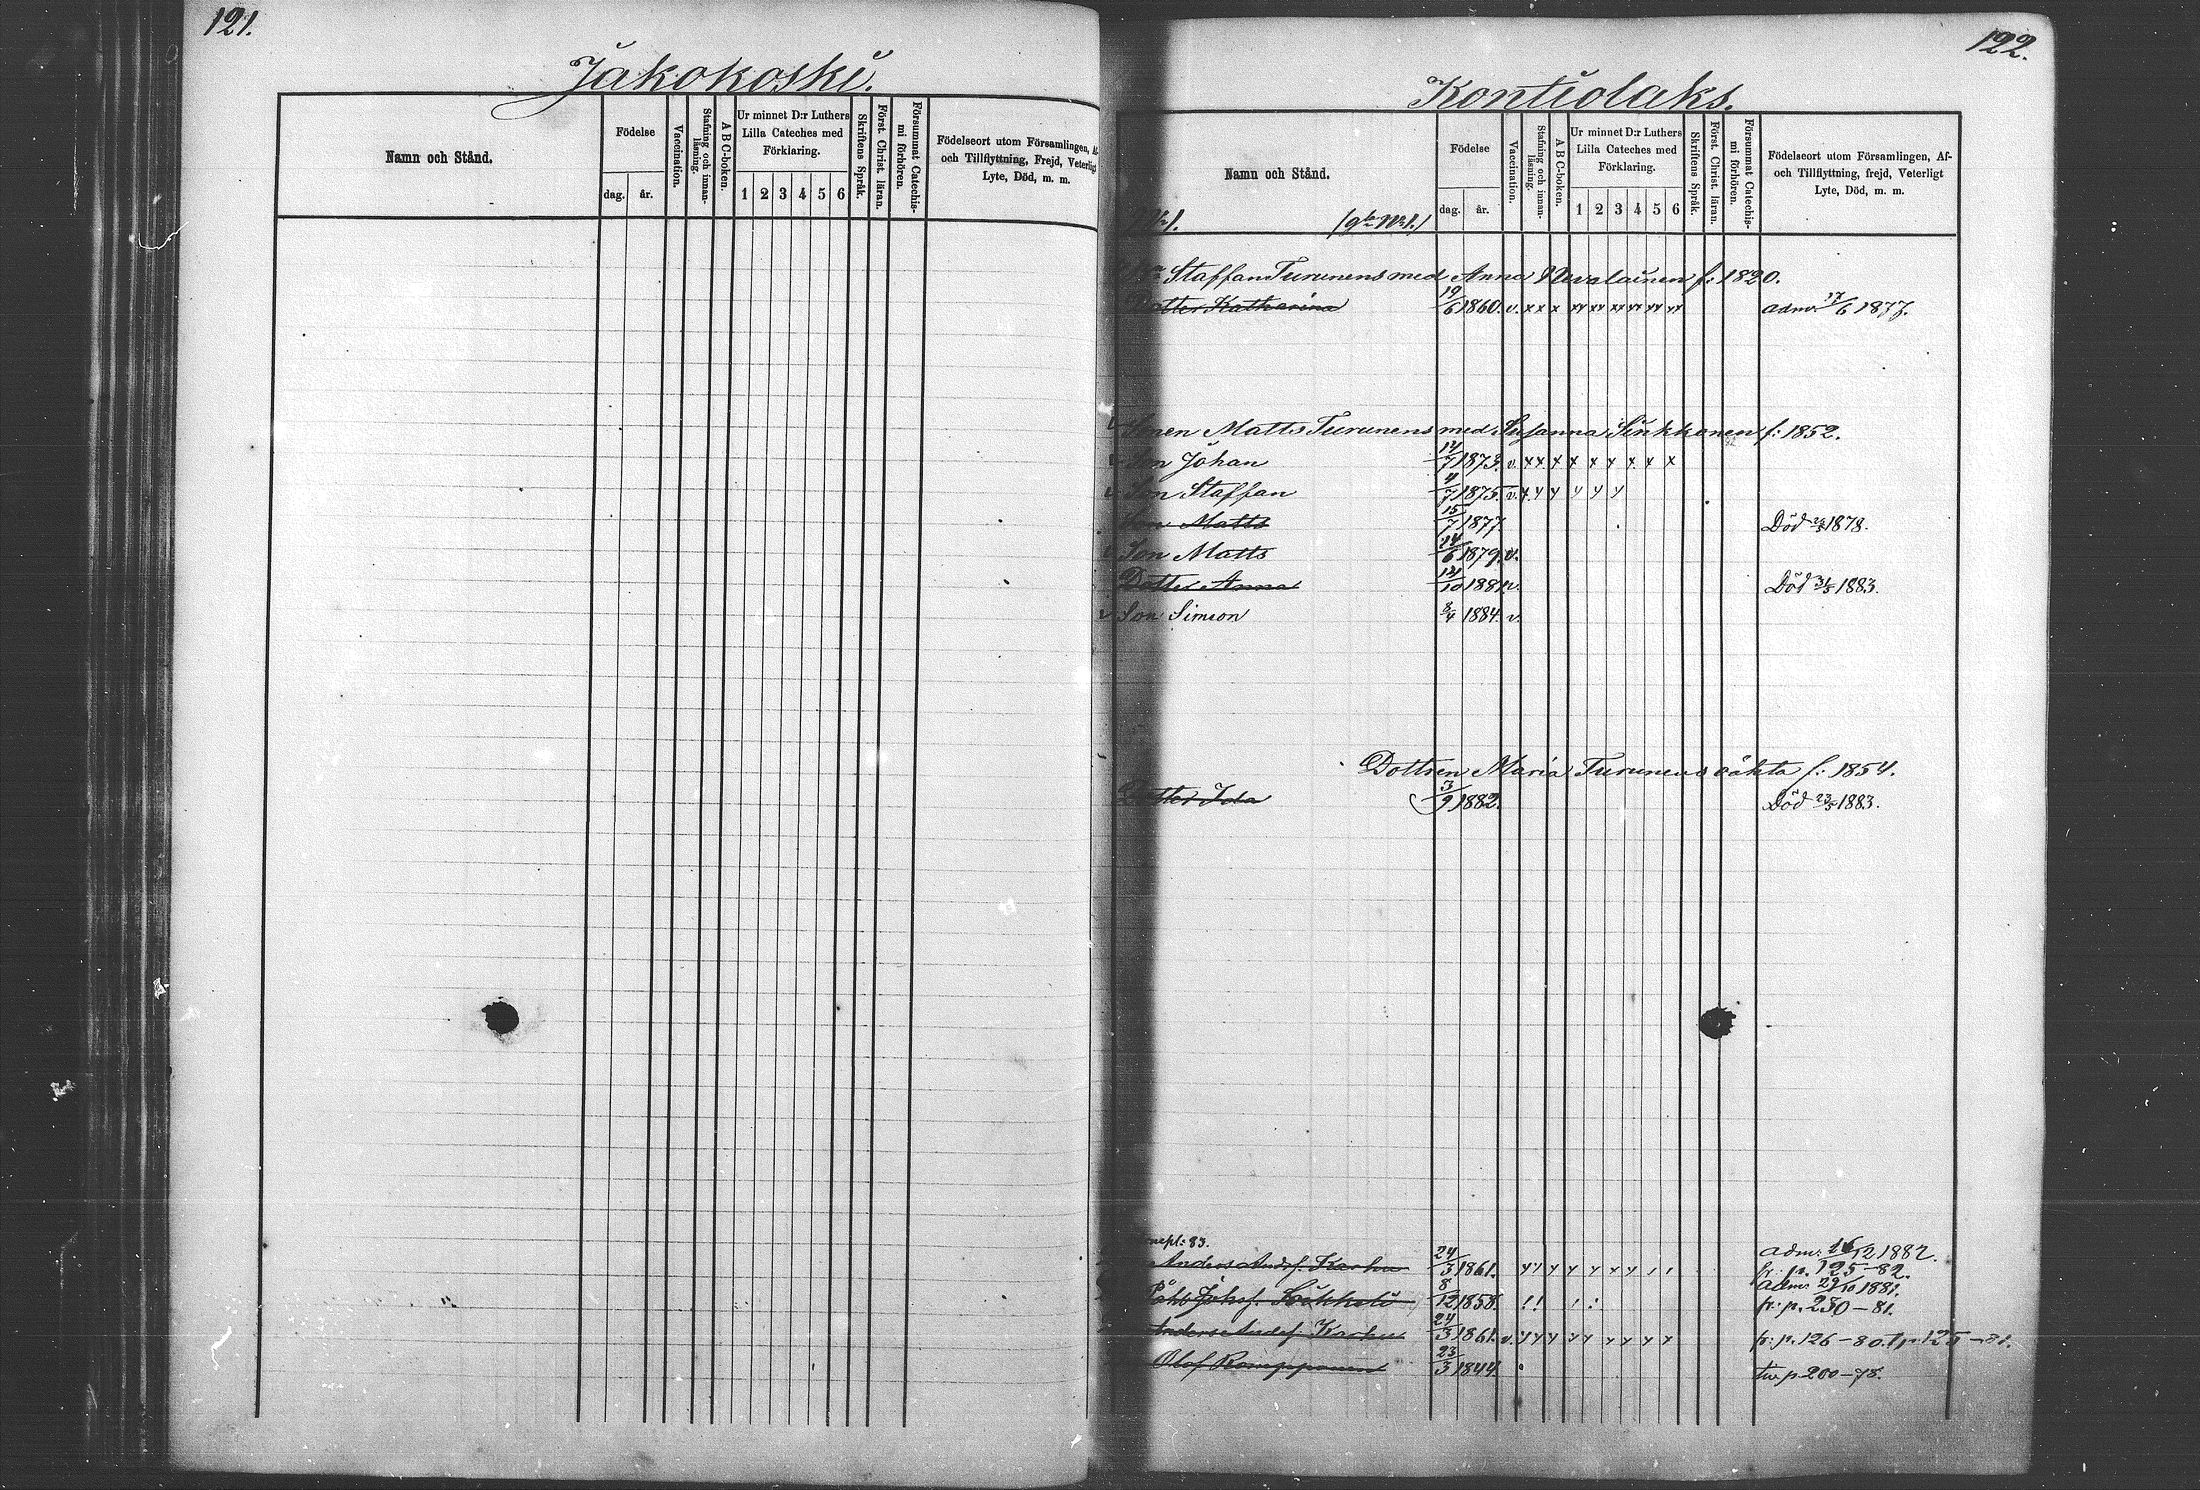 121.
Jakokoski.
Namn och Stånd.
Födelse
dag. år.
Vaccination.
Stafning och innan-
läsning.
A B C-boken.
Ur minnet D:r Luthers
Lilla Cateches med
Förklaring.
1 2 3 4 5 6
Skriftens Språk.
Först. Christ. läran.
Försummat Catechis-
mi förhören.
Födelseort utom Församlingen,
och Tillflyttning, Frejd, Veterligt
Lyte, Död, m. m.
122.
Kontiolaks.
Namn och Stånd.
Födelse
dag. år.
Vaccination.
Stafning och innan-
läsning.
A B C-boken.
Ur minnet D:r Luthers
Lilla Cateches med
Förklaring.
1 2 3 4 5 6
Skriftens Språk.
Först. Christ. läran.
Försummat Catechis-
mi förhören.
Födelseort utom Församlingen, Af-
och Tillflyttning, frejd, Veterligt
Lyte, Död, m. m.
Staffan Turunens med Anna Nevalainen f: 1820.
Dotter Katharina 19/6 1860. v. x x x xx xx xx xx xx xx adm. 17/6 1877.
Sonen Matts Turunens med Susanna Sinkkonen f: 1852.
Son Johan 14/7 1873. v. x x x x x x x x x x
Son Staffan 4/7 1875. v. y y y y y y
Son Matts 15/7 1877 Död 1878.
Son Matts 14/6 1879. v.
Dotter Anna 1881 v. Död 31/5 1883.
Son Simeon 8/4 1884. v.
Dottren Maria Turunens oäkta f: 1854.
Dotter Ida 3/9 1882. Död 23/5 1883.
83.
Anders Andsf. Karhu 24/3 1861. adm: 16/12 1882.
fr. p. 125-82.
Påhl Johsf. 8/12 1858. adm. 29/10 1881.
fr: p. 230-81.
Anders Andsf. Karhu 24/3 1861. v. fr: p. 126-80. t. p. 125-81.
Olof Romppanen 23/3 1844. p. 200-78.